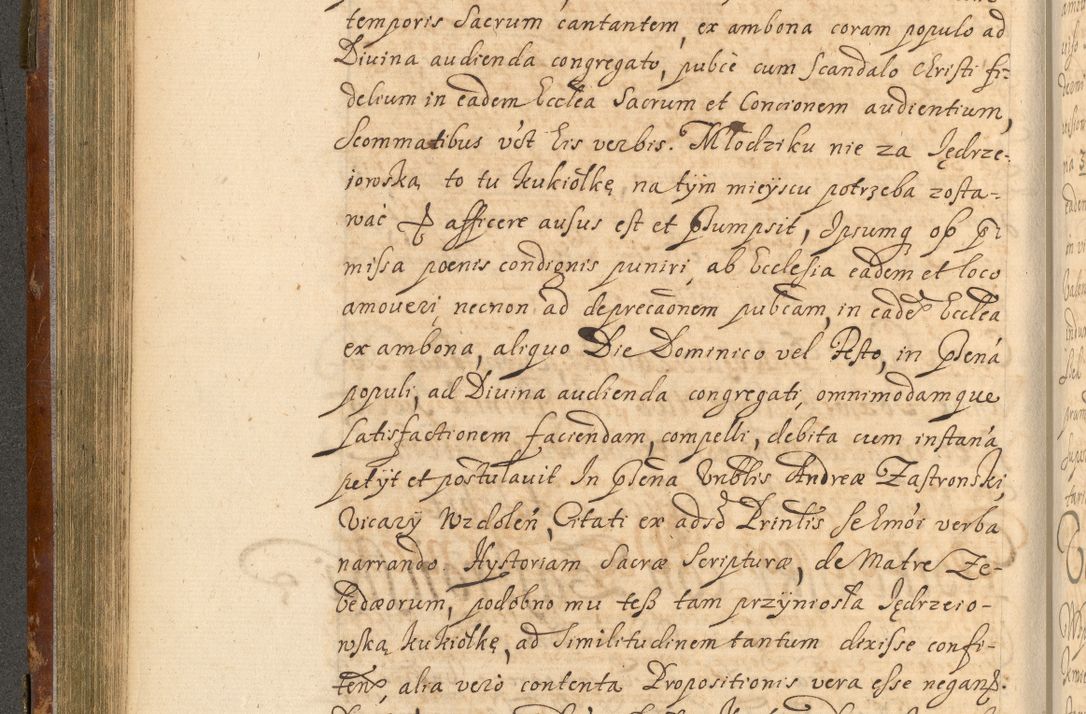 temporis Sacrum cantantem, ex ambona coram populo ad
Divina audienda congregato, pubcè cum scandalo Christi fi-
delium in eadem Ecclea Sacrum et Concionem audientium,
Scommatibus vst Eis verbis. Młodziku nie za Jędrze-
iowską to tu kukiołkę na tym mieyscu potrzeba zosta-
wać afficere ausus est et Psumpsit, Ipsumq ob
missa poenis condignis puniri, ab Ecclesia eadem et loco
amoveri, necnon ad deprecaonem pubcam, in eade Ecclea
ex ambona, aliquo Die Dominico vel Festo, in Psena
populi, ad Divina audienda congregati, omnimodamque
satisfactionem faciendam, compelli, debita cum instana
petyt et postulavit. In Psena Vnblis Andreæ Zastronski,
Vicary Wzdolen, Citati ex adso Prinlis se
verba
narrando. Hystoriam Sacræ Scripturæ, de Matre Ze-
bedæorum, podobno mu tesz tam przyniosła Jędrzeio-
wską kukiołkę, ad similitudinem tantum dixisse confi-
ten, alia vero contenta Propositionis vera esse negans.